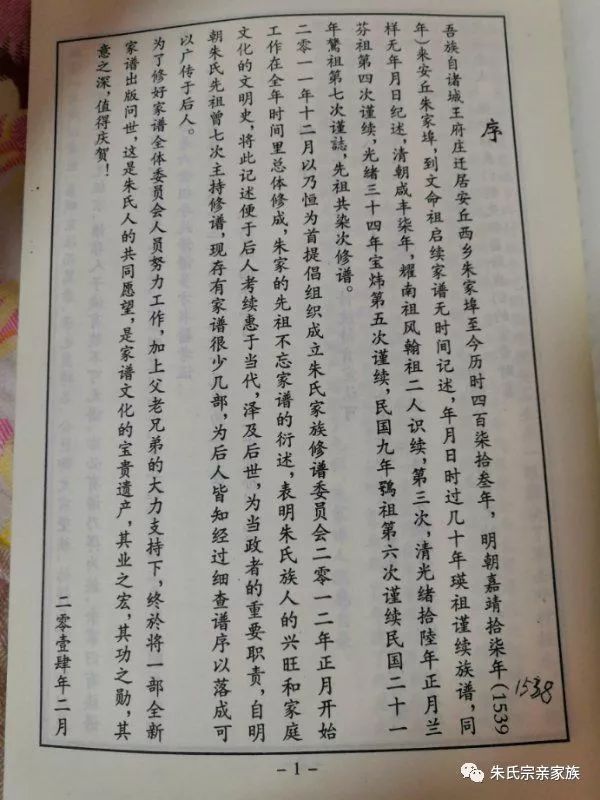 序
吾族自诸城王府庄迁居安丘西乡朱家埠至今历时四百柒拾叁年，明朝嘉靖拾柒年（1539
1538
年）来安丘朱家埠，到文命祖启续家谱无时间记述，年月日时过几十年瑛祖谨续族谱，同
样无年月日纪述，清朝咸丰柒年，耀南祖风翰祖二人识续，第三次，清光绪拾陆年正月兰
芬祖第四次谨续，光绪三十四年宝炜第五次谨续，民国九年鸮祖第六次谨续民国二十一
年鸶祖第七次谨誌，先祖共柒次修谱。
二零一一年十二月以乃恒为首提倡组织成立朱氏家族修谱委员会二零一二年正月开始
工作在全年时间里总体修成，朱家的先祖不忘家谱的衍述，表明朱氏族人的兴旺和家庭
文化的文明史，将此记述便于后人考续惠于当代，泽及后世，为当政者的重要职责，自明
朝朱氏先祖曾七次主持修谱，现存有家谱很少几部，为后人皆知经过细查谱序以落成可
以广传于后人。
为了修好家谱全体委员会人员努力工作，加上父老兄弟的大力支持下，终於将一部全新
家谱出版问世，这是朱氏人的共同愿望，是家谱文化的宝贵遗产，其业之宏，其功之勋，其
意之深，值得庆贺！
二零壹肆年二月
- 1 -
朱氏宗亲家族